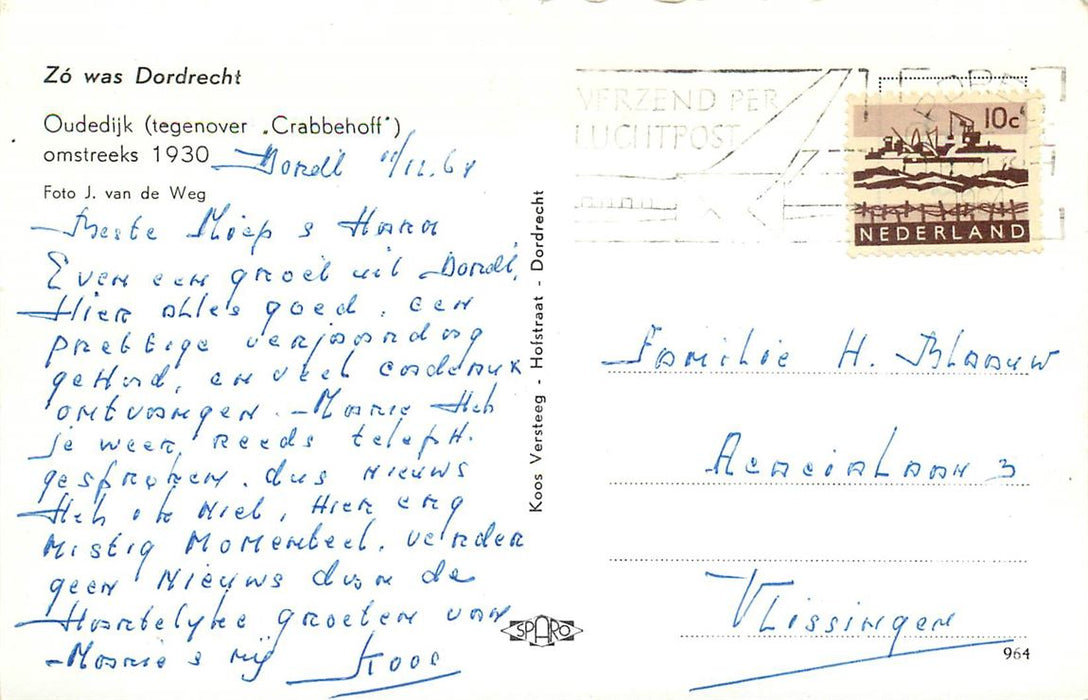 Zó was Dordrecht
Oudedijk (tegenover „Crabbehoff")
omstreeks 1930
Foto J. van de Weg
Dordt 11/12.64
Beste Miep & Hans
Even een groet uit Dordt,
Hier alles goed. een
prettige verjaardag
gehad, en veel cadeaux
ontvangen. Marrie Heb
je weer reeds telefh.
gesproken. dus nieuws
Heb ik niet, Hier erg
mistig momenteel. verder
geen nieuws dan de
Hartelyke groeten van
Marrie & mij Koos
Koos Versteeg - Hofstraat - Dordrecht
VERZEND PER
LUCHTPOST
10c
NEDERLAND
Familie H. Blaauw
Acacialaan 3
Vlissingen
SPARO
964